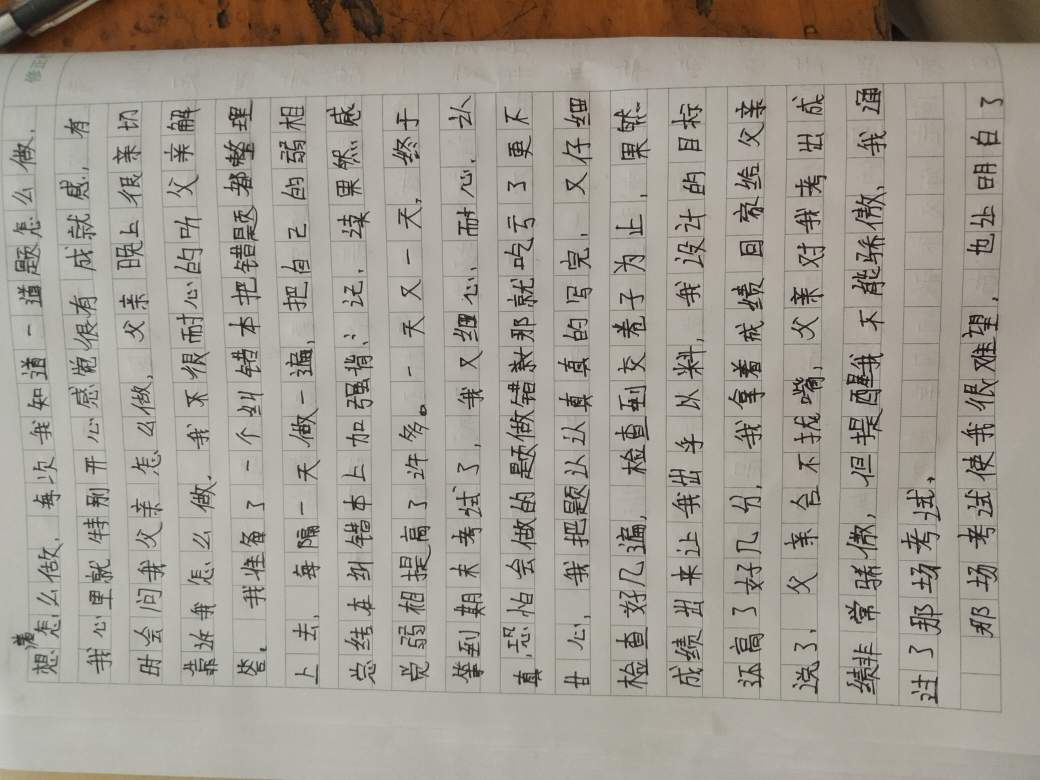 想着怎么做，每次我知道一道题怎么做，
我心里就特别开心感觉很有成就感，有
时会问我父亲怎么做，父亲晚上很亲切
靠近我怎么做，我不很耐心的听父亲解
答。我准备了一个纠错本把错题都整理
上去，每隔一天做一遍，把自己的弱相
总结在纠错本上加强背、记，读果然感
觉弱相提高了许多。一天又一天，终于
等到期末考试了，我又细心、耐心、认
真，恐怕会做的题做错款那就吃亏了更不
甘心，我把题认认真真的写完，又仔细
检查好几遍，检查到交卷子为止，果然
成绩出来让我出乎以料，我设计的目标
还高了好几分，我拿着成绩回家给父亲
说了，父亲合不拢嘴，父亲对我考出成
绩非常骄傲，但提醒我不能骄傲，我通
过了那场考试。
那场考试使我很难望，也让明白了